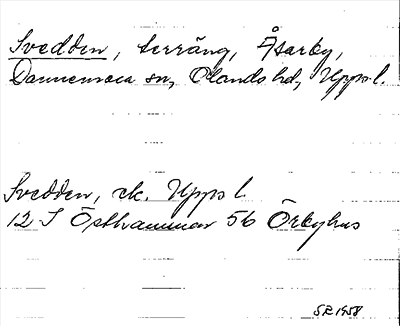 Svedden, terräng, Åsarby,
Dannemora sn, Olands hd, Upps. l.
Svedden, ek. Upps l
12 I Östhammar 56 Örbyhus
SR 1958